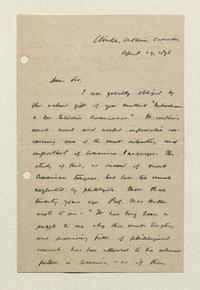 Clinton, Ontario, Canada
April 24, 1896
Dear Sir,
I am greatly obliged by
the valued gift of your excellent "Introduction
" It contains
much novel and useful information con-
cerning one of the most interesting and
important of American languages. The
study of that, as indeed of most
American tongues, has been too much
neglected by philologists. More than
twenty years ago Prof. Max Müller
wrote to me – "It has long been a
puzzle to me why this most tempting
and promising field of philological
research has been allowed to lie almost
fallow in America, – as if these